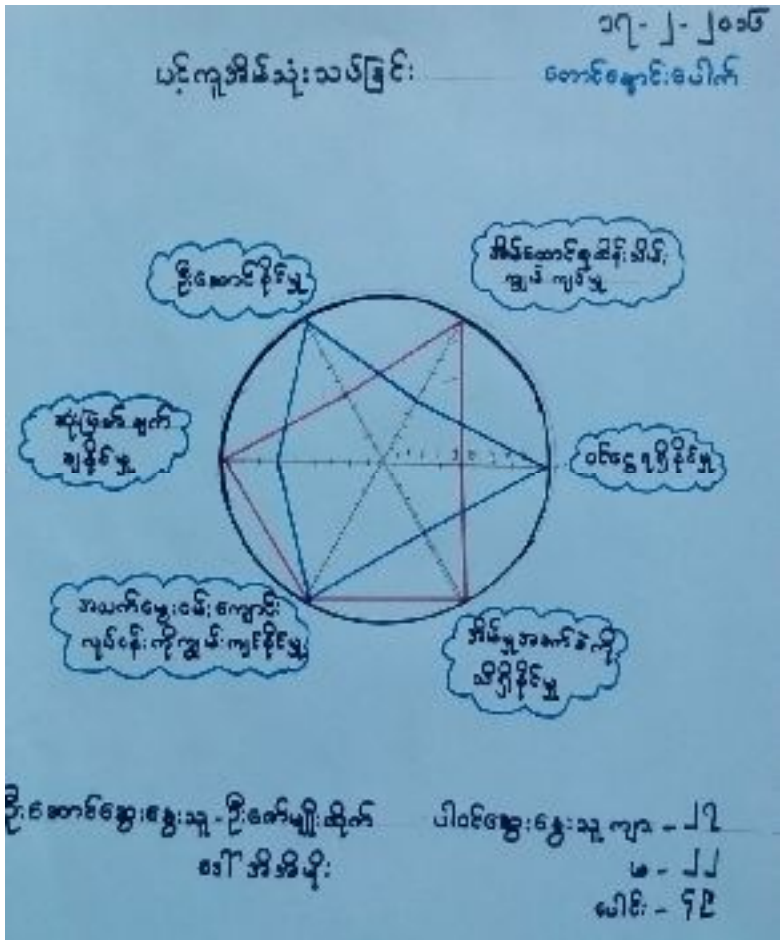 ၁၇-၂-၂၀၁၆
ပင့်ကူအိမ်သုံးသပ်ခြင်း
တောင်နှောင်းပေါက်
ဦးဆောင်နိုင်မှု
အိမ်ထောင်စုထိန်းသိမ်း
ကျွမ်းကျင်မှု
ဆုံးဖြတ်ချက်
ချနိုင်မှု
ဝင်ငွေရရှိနိုင်မှု
အသက်မွေးဝမ်းကျောင်း
လုပ်ငန်းကိုကျွမ်းကျင်နိုင်မှု
အိမ်မှုအခက်ခဲကို
သိရှိနိုင်မှု
ဦးဆောင်ဆွေးနွေးသူ-ဦးဇော်မျိုးထိုက်
ဒေါ်အိအိမိုး
ပါဝင်ဆွေးနွေးသူ ကျား - ၂၇
မ - ၂၂
ပေါင်း - ၄၉